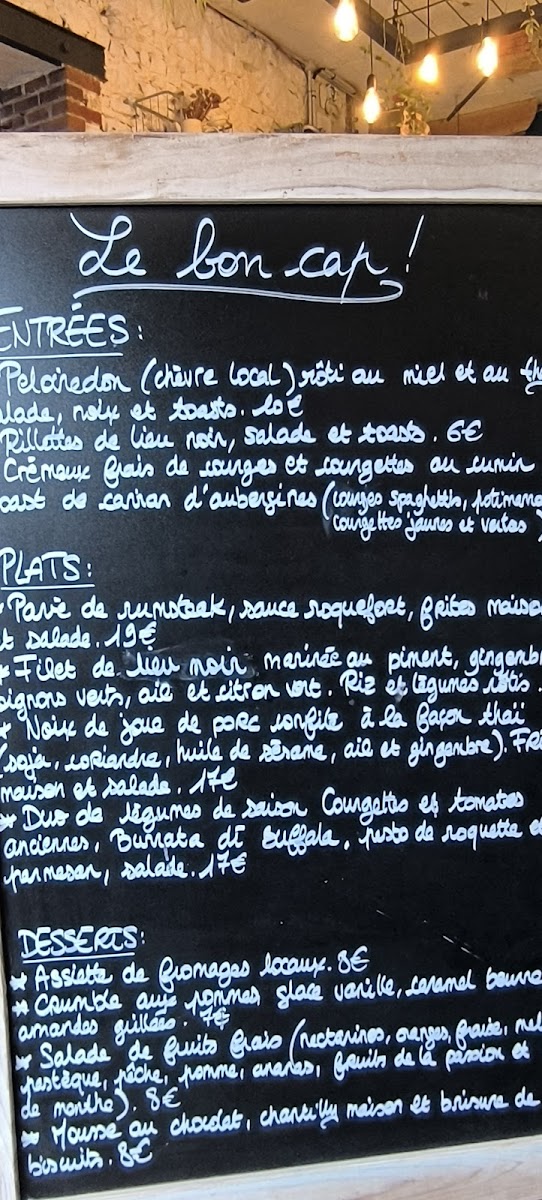 Le bon cap !
ENTRÉES :
Pelairedon (chèvre local) rôti au miel et au
noix et toasts. 10€
Rillettes de lieu noir, salade et toasts. 6€
Crémeux frais de courges et courgettes au cumin
de caviar d'aubergines (courges spaghettis,
courgettes jaunes et vertes)
PLATS :
Pavé de rumsteak, sauce roquefort, frites
salade. 19€
* Filet de lieu noir marinée au piment,
verts, ail et citron vert. Riz et légumes rôtis.
* Noix de joue de porc confite à la façon thaï
(soja, coriandre, huile de sésame, ail et gingembre).
maison et salade. 17€
* Duo de légumes de saison Courgettes et tomates
anciennes, Burrata di buffala, pesto de roquette et
parmesan, salade. 17€
DESSERTS :
* Assiette de fromages locaux. 8€
* Crumble aux pommes glace vanille, caramel beurre
amandes grillées. 7€
* Salade de fruits frais (nectarines, oranges, fraise,
pastèque, pêche, pomme, ananas, fruits de la passion et
de menthe). 8€
* Mousse au chocolat, chantilly maison et brisure de
biscuits. 8€